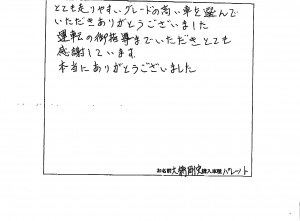 とても走りやすい、グレードの高い車を選んで
いただきありがとうございました
運転の御指導までいただきとても
感謝しています。
本当にありがとうございました
お名前 購入車種 パレット